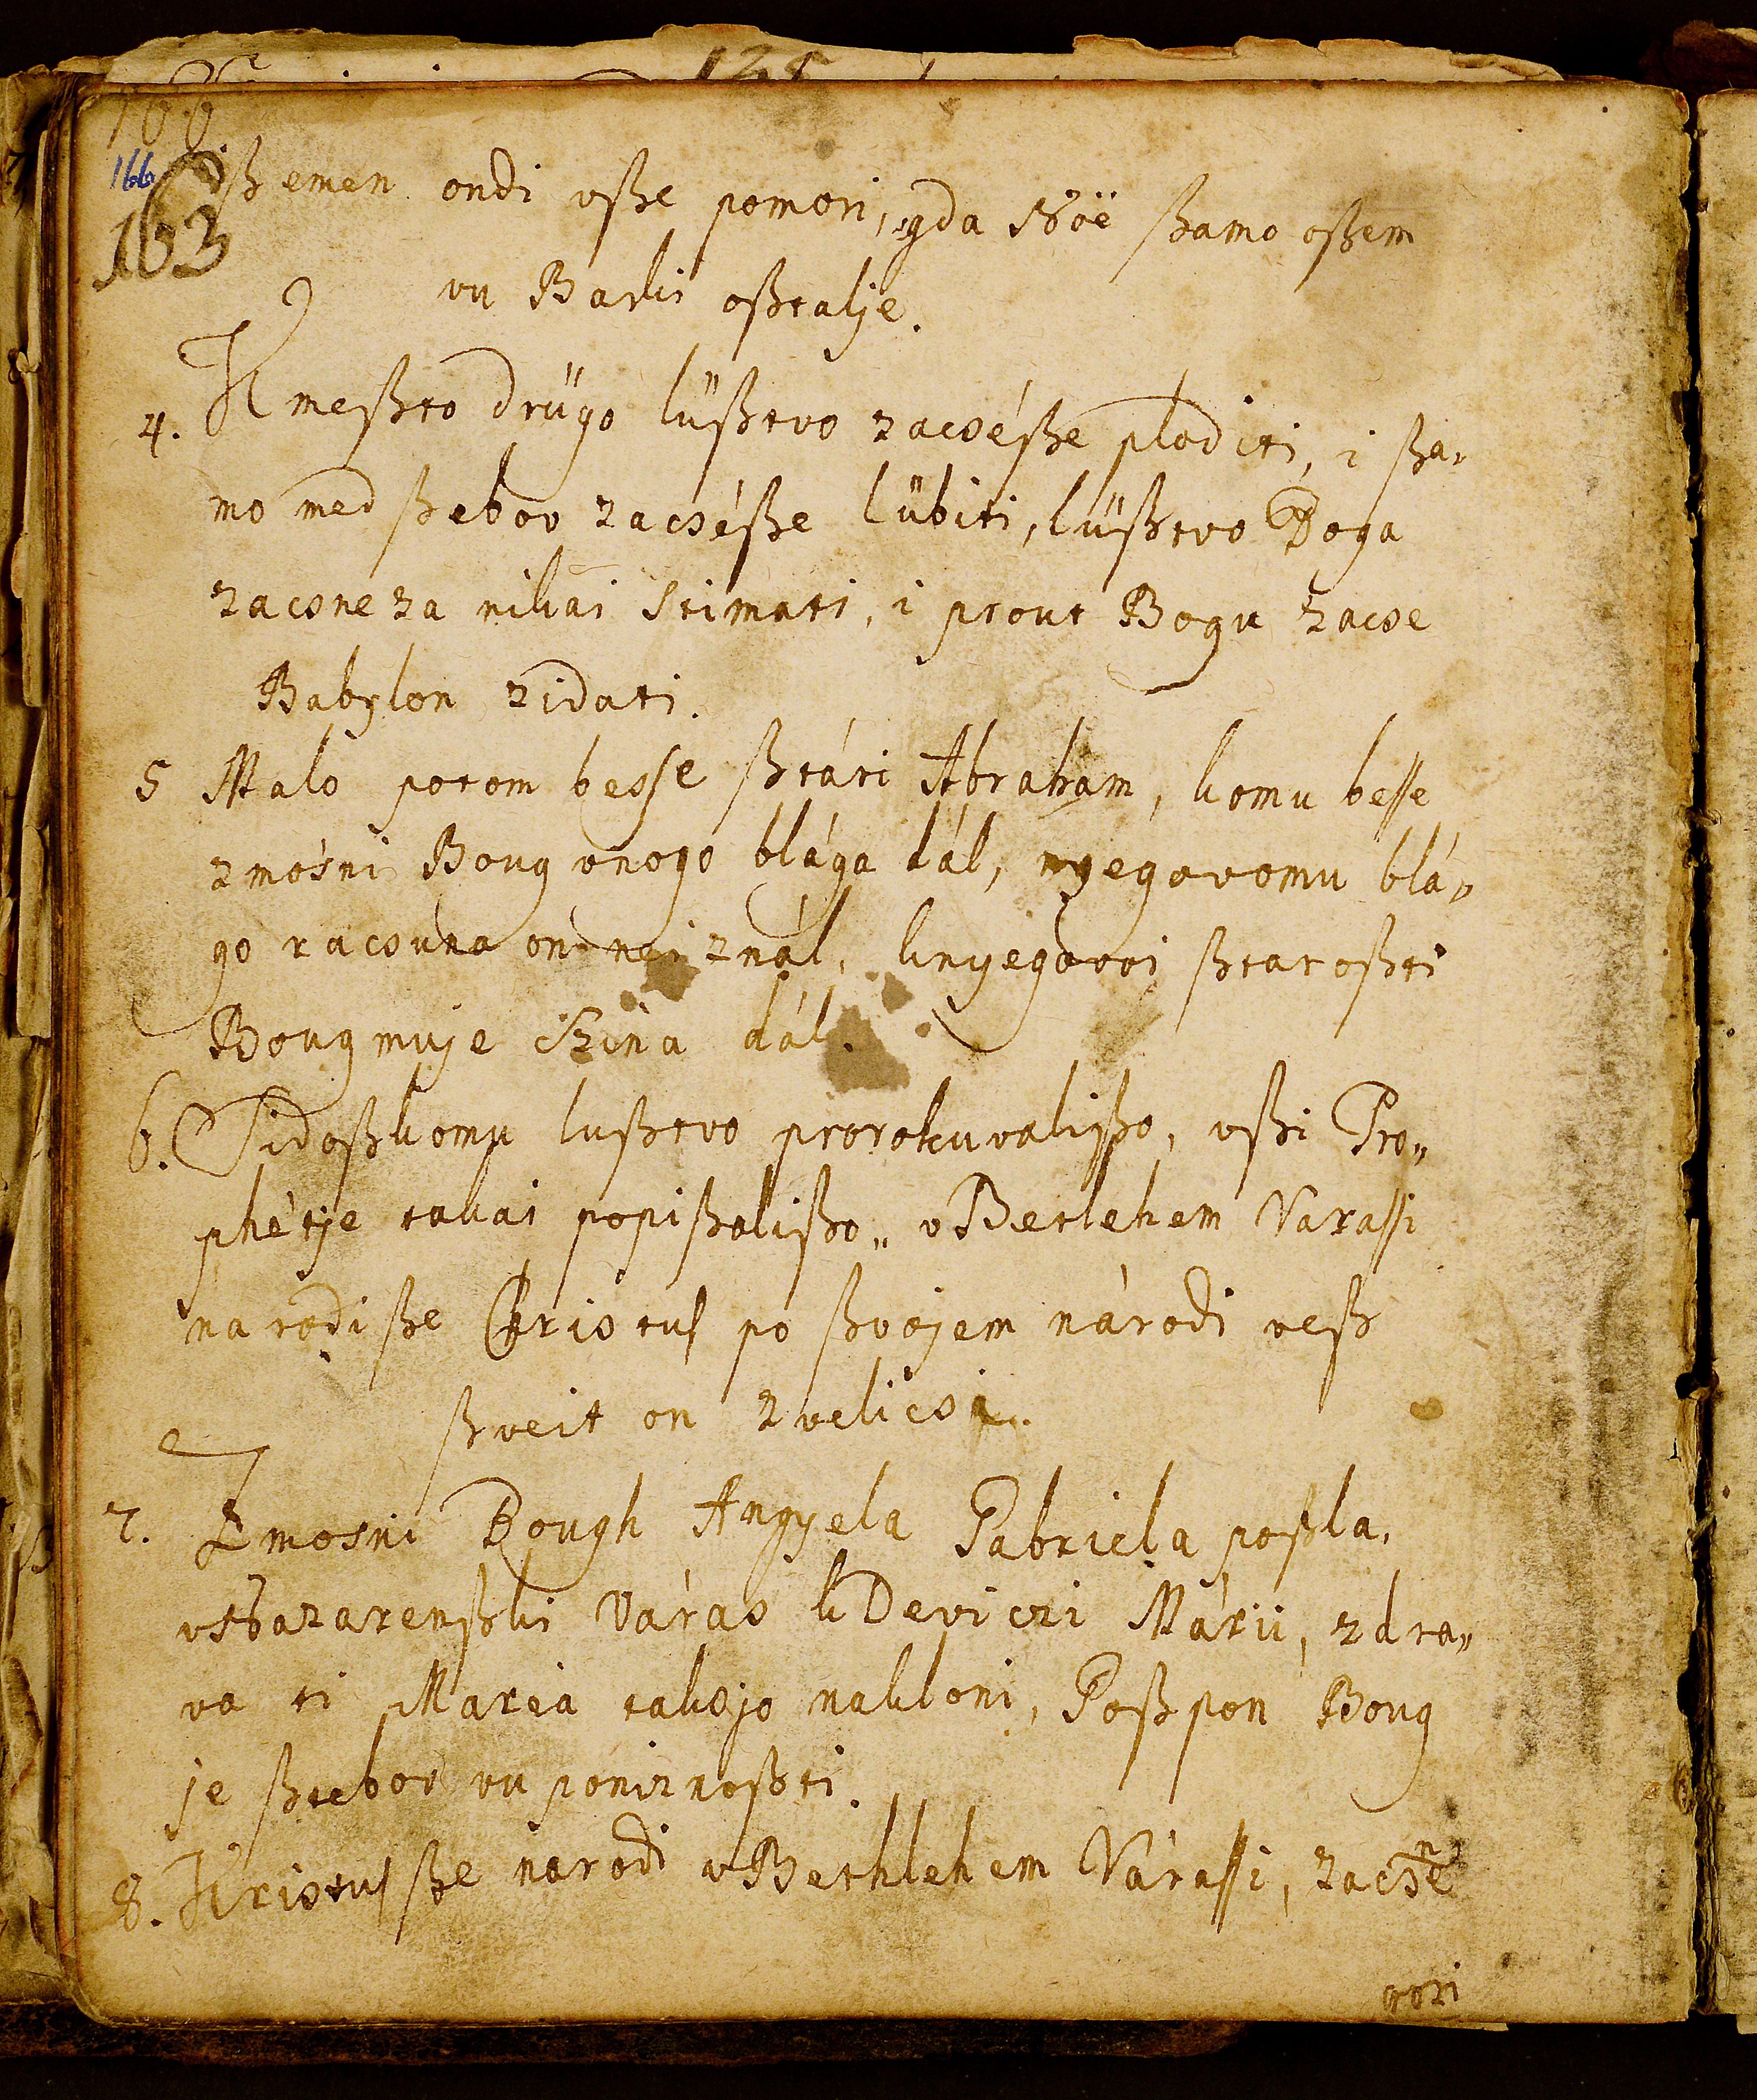 166
163
ißemen ondi vße pomori, gda Nöë ßamo oßem
vu Barki oßtalje.
4. K meßto drügo lüßtvo zacséße ploditi, i ßa-
mo med ßebov zacséße lübiti, lüßtvo Boga
zacsne za nikai stimati, i prout Bogu zacse
Babylon zidati.
5 Malo potom besse ßtári Abraham, komu besse
zmosni Boug vnogo blága dál, nyegovomu blá„
go racsuna on nei znál, knyegovoi ßtaroßti
Boug muje Szina dál.
6. Sidoßkomu lußtvo prorokuvalißo, vßi Pro„
phétje takai popißalißo„ v Betlehem Varassi
narodi ße Christus po ßvojem národi veß
ßveit on zvelicsi.
7. Zmosni Bough Angyela Gabriela poßla,
v Nazarenßki Váras k Deviczi Márii, zdra„
va ti Maria takojo nakloni, Goßpon Boug
je ßtebov vu poniznoßti.
8. Kristus ße narodi v Bethlehem Várassi, zacsne
gori